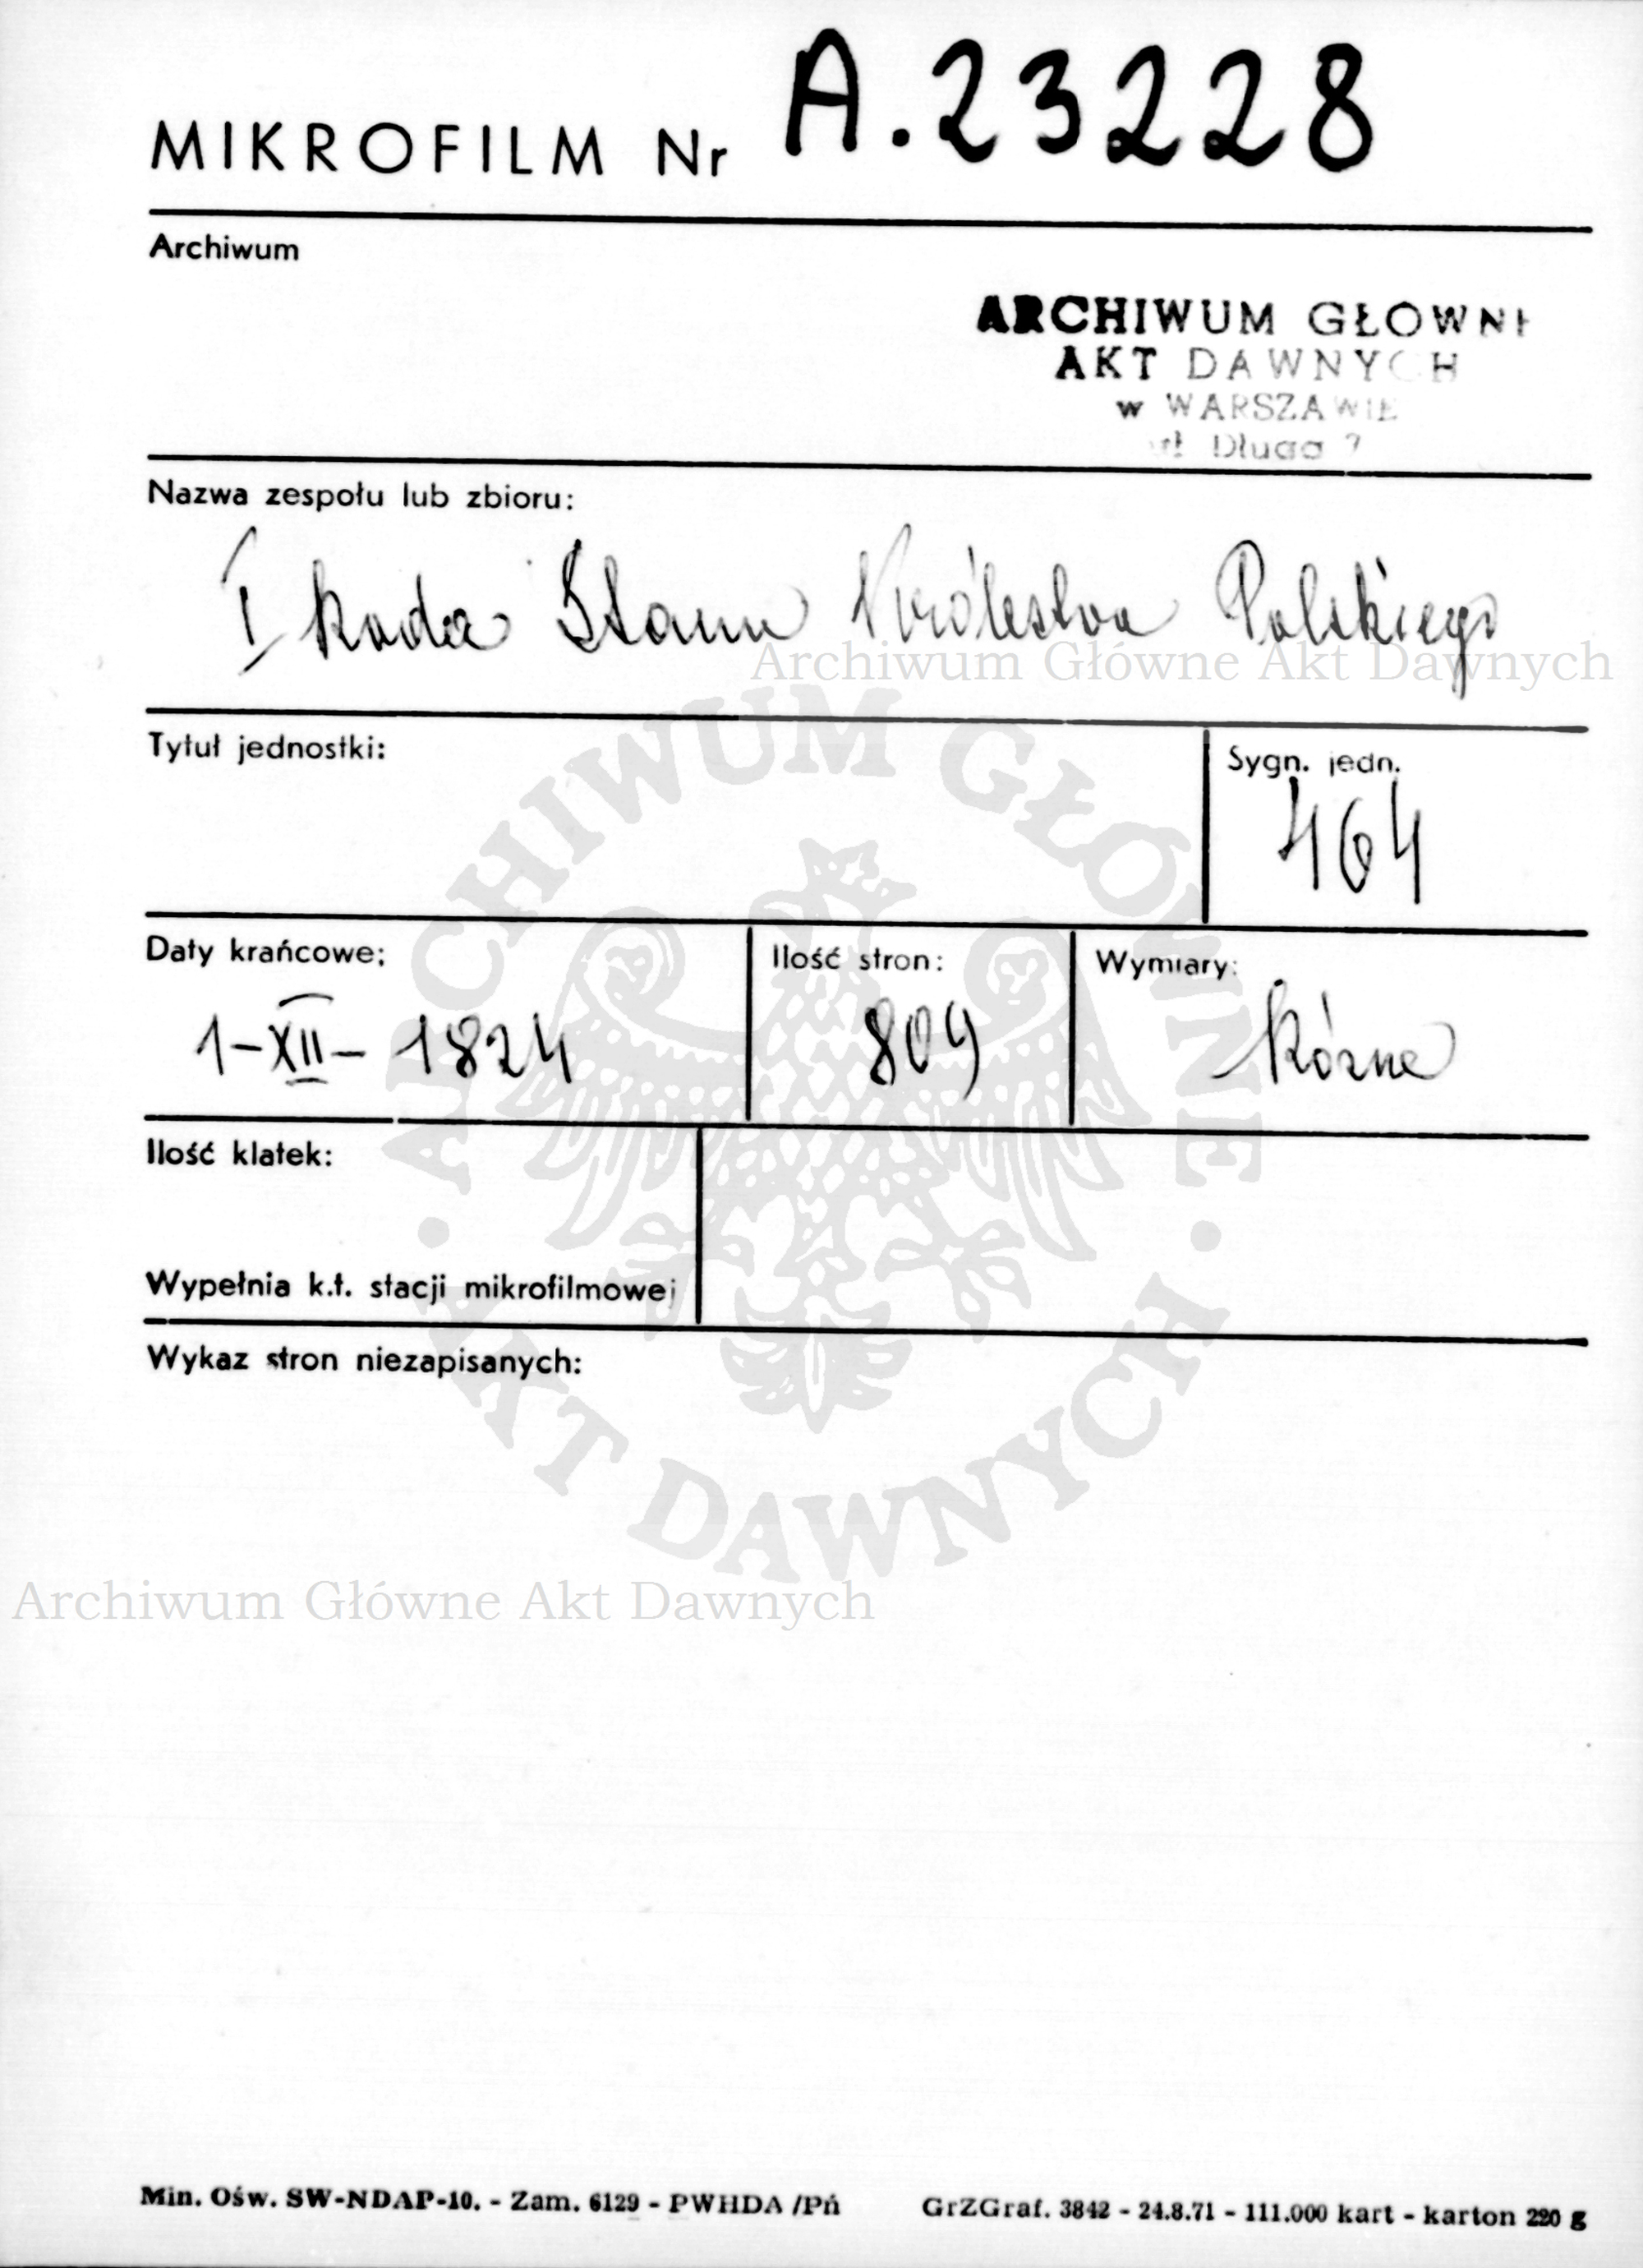 MIKROFILM Nr A.23228
Archiwum
ARCHIWUM GŁOWNE
AKT DAWNYCH
w WARSZAWIE
ul Długa 7
Nazwa zespołu lub zbioru:
I Rada Stanu Królestwa Polskiego
Archiwum Główne Akt Dawnych
Tytuł jednostki:
Sygn. jedn.
464
Daty krańcowe:
Ilość stron:
Wymiary:
1-XII- 1824
809
Różne
Ilość klatek:
Wypełnia k.t. stacji mikrofilmowej
Wykaz stron niezapisanych:
ARCHIWUM GŁÓWNE · AKT DAWNYCH ·
Archiwum Główne Akt Dawnych
Min. Ośw. SW-NDAP-10. - Zam. 6129 - PWHDA /Pń
GrZGraf. 3842 - 24.8.71 - 111.000 kart - karton 220 g